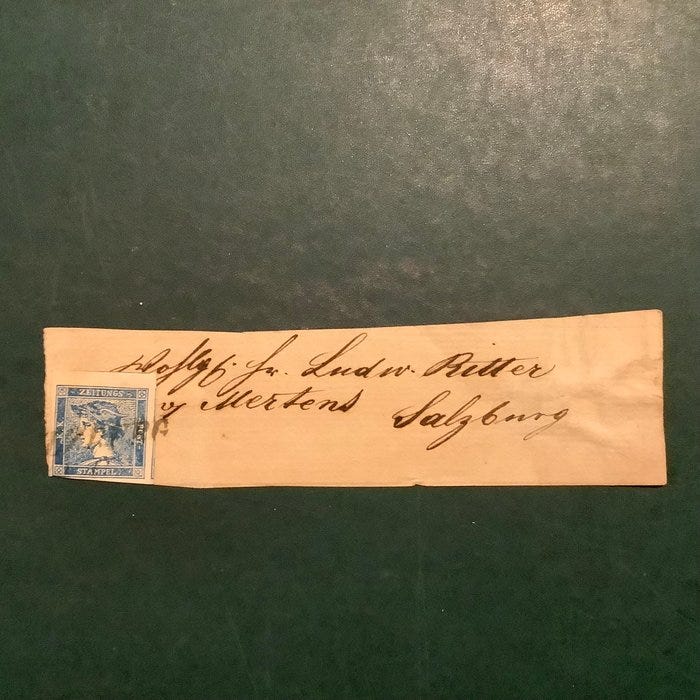 Wohlg. Hr. Ludw. Ritter
v Mertens
Salzburg
ZEITUNGS
K.K.
STAMPEL